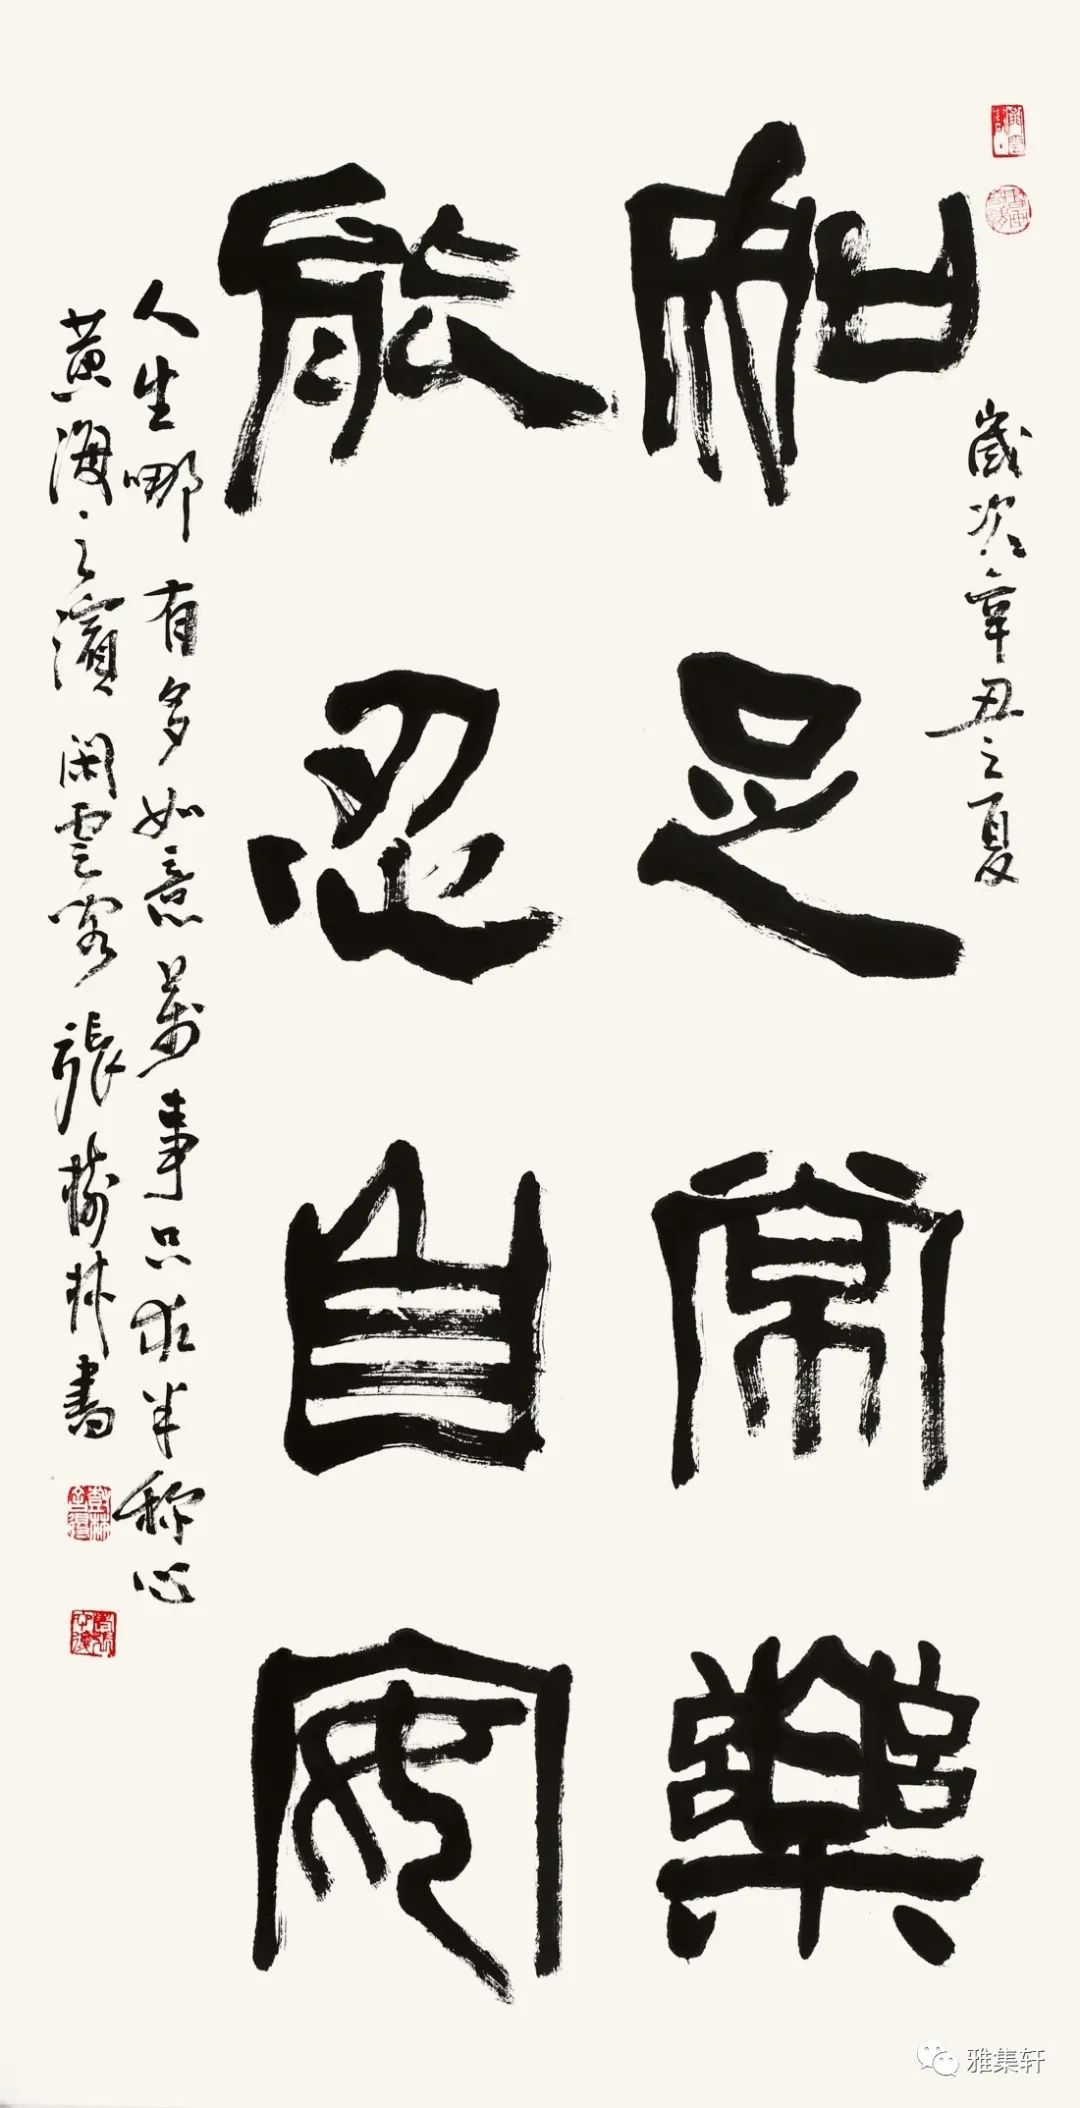 歲次辛丑之夏
知足常樂
能忍自安
人生哪有多如意萬事只求半称心
黄海之濱閑雲客張樹林書
雅集轩